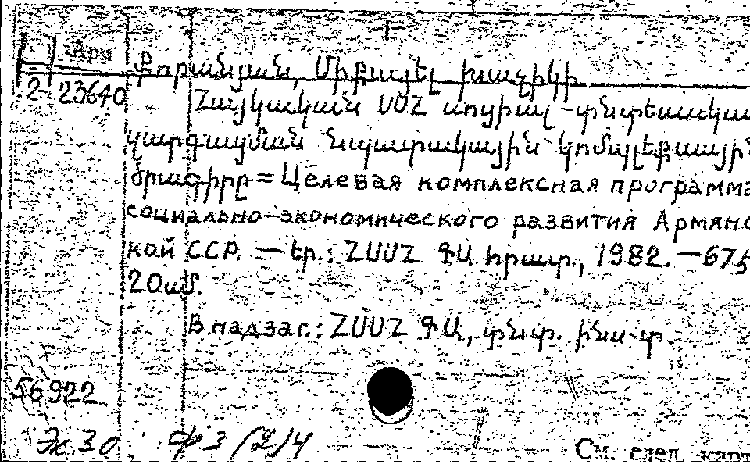 Арм
Քոթանյան, Միքայել Խաչիկի
2 23640 Հայկական ՍՍՀ սոցիալ-տնտեսակա
զարգացման նպատակային կոմպլեքսային
ծրագիրը = Целевая комплексная программа
социально-экономического развития Армянс
кой ССР. — Եր.: ՀՍՍՀ ԳԱ հրատ., 1982. — 675
20սմ.
В надзаг.: ՀՍՍՀ ԳԱ, տնտ. ինս-տ.
56922
См. след. карт